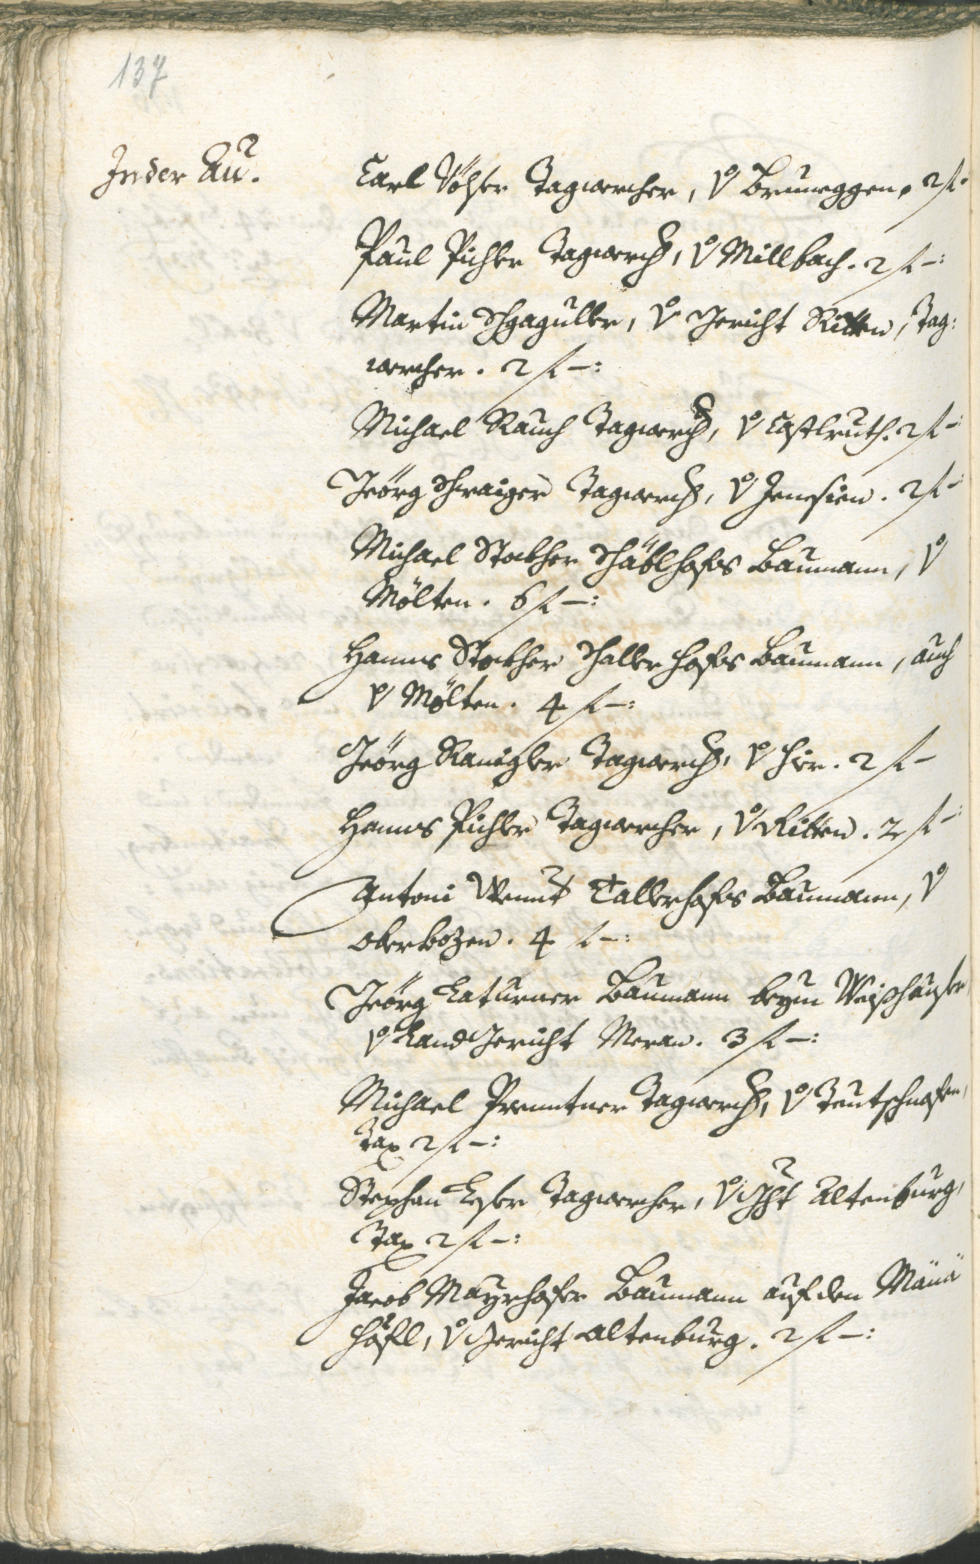 137
In der Au.
Carl Völser Tagwercher, v Bruneggen. 2 f
Paul Pichler Tagwerch, v Millbach. 2 f –:
Martin Schgaguller, v Gericht Ritten, Tag:
wercher. 2 f –:
Michael Rauch Tagwerch, v Castlruth. 2 f –:
Jeörg Schwaiger Tagwerch, v Jenesien. 2 f –:
Michael Stockher Baumann, v
Mölten. 6 f –:
Hanns Stockher Schallerhofs Baumann, auch
v Mölten. 4 f –:
Jeörg Ramgler Tagwerch, v hir. 2 f –
Hanns Pichler Tagwercher, v Ritten. 2 f –:
Antoni Tallerhofs Baumann, v
oberbozen. 4 f –:
Jeörg Laturner Baumann beym Weishäusler
v Landgericht Meran. 3 f –:
Michael Prenntner Tagwerch, v Teutschnofen,
Tax 2 f –:
Stephan Tagwercher, v Altenburg,
Tax 2 f –:
Jacob Mayrhofer Baumann auf den
höfl, v Gericht Altenburg. 2 f –: